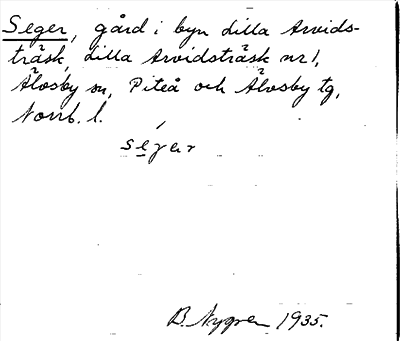 Seger, gård i byn Lilla Arvids-
träsk, Lilla Arvidsträsk nr 1,
Älvsby sn, Piteå och Älvsby tg,
Norrb. l.
séger
B. Nygren 1935.